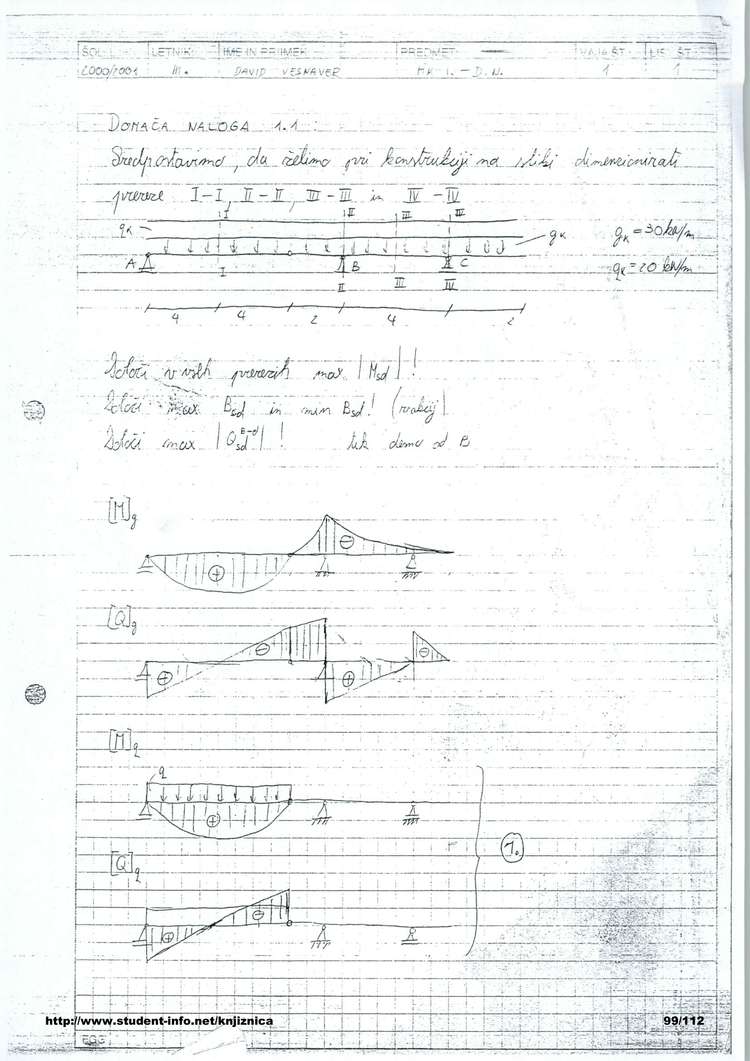 ŠOL. L. LETNIK IME IN PRIIMEK PREDMET VAJA ŠT. LIST ŠT.
2000/2001 III. DAVID VESNAVER MK I. - D.N. 1 1
DOMAČA NALOGA 1.1
Predpostavimo, da želimo pri konstrukciji na sliki dimenzionirati
prereze I-I, II-II, III-III in IV-IV
I II III IV
qk gk gk = 30 kN/m
A B C qk = 20 kN/m
I II III IV
4 4 2 4 2
Določi v vseh prerezih max |Msd|!
Določi max Bsd in min Bsd! (reakcij)
Določi max |Qsd B-d|! tik desno od B
[M]g
+ −
[Q]g
+ − + −
[M]q
q
+
1.
[Q]q
+ −
http://www.student-info.net/knjiznica 99/112